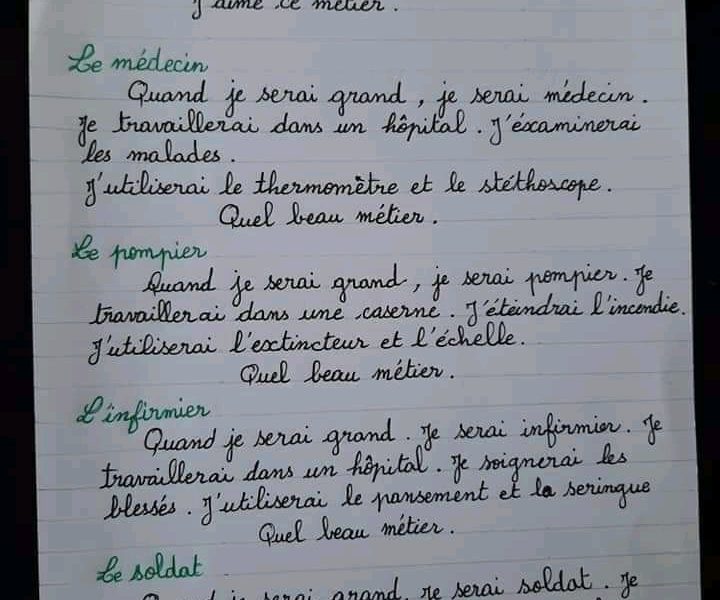 J'aime ce métier.
Le médecin
Quand je serai grand, je serai médecin.
Je travaillerai dans un hôpital. J'éxaminerai
les malades.
J'utiliserai le thermomètre et le stéthoscope.
Quel beau métier.
Le pompier
Quand je serai grand, je serai pompier. Je
travaillerai dans une caserne. J'éteindrai l'incendie.
J'utiliserai l'extincteur et l'échelle.
Quel beau métier.
L'infirmier
Quand je serai grand. Je serai infirmier. Je
travaillerai dans un hôpital. Je soignerai les
blessés. J'utiliserai le pansement et la seringue
Quel beau métier.
Le soldat
Quand je serai grand, je serai soldat. Je